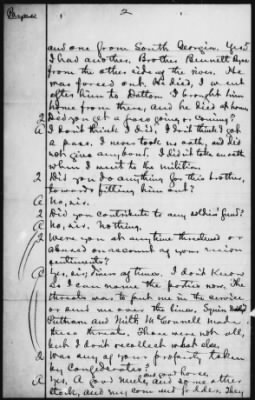 2
and one from South Georgia. Yes
I had another. Brother Bennett
from the other side of the river. He
was forced out. He died, I went
after him to Dalton I brought him
home from there, and he died at home
Q Did you get a pass going or coming?
A I don't think I did. I don't think I got
a pass. I never took no oath, and did
not give any bond. I didn't take an oath
when I went to the militia.
Q Did you do anything for this brother,
towards fitting him out?
A No, sir.
Q Did you contribute to any soldier fund?
A No, sir. Nothing.
Q Were you at any time threatened or
abused on account of your union
sentiments?
A Yes, sir; times of times. I don't know
as I can name the parties now. The
threats was to put me in the service
or send me over the lines. Squire
Putnam and Milt McConnell made
these threats. These were not all,
but I don't recollect what else.
Q Was any of your property taken
by Confederates?
one good horse,
A Yes, A good mule, and some other
stock, and my corn and fodder. They